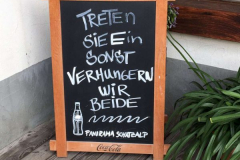 TRETEN
SIE Ein
SONST
VERHUNGERN
WIR
BEIDE
PANORAMA SCHATZALP
Coca-Cola